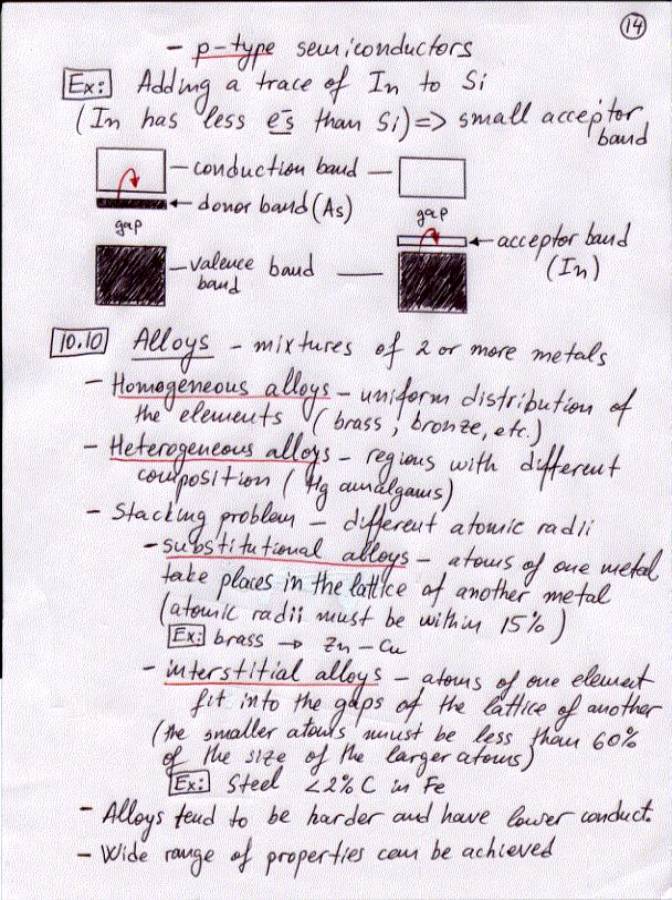 14
- p-type semiconductors
Ex: Adding a trace of In to Si
(In has less e⁻s than Si) => small acceptor
band
- conduction band -
donor band (As)
gap
gap
acceptor band
(In)
- valence band —
band
10.10 Alloys - mixtures of 2 or more metals
- Homogeneous alloys - uniform distribution of
the elements (brass, bronze, etc.)
- Heterogeneous alloys - regions with different
composition (Hg amalgams)
- Stacking problem - different atomic radii
- substitutional alloys - atoms of one metal
take places in the lattice of another metal
(atomic radii must be within 15%)
Ex: brass → Zn-Cu
- interstitial alloys - atoms of one element
fit into the gaps of the lattice of another
(the smaller atoms must be less than 60%
of the size of the larger atoms)
Ex: Steel <2% C in Fe
- Alloys tend to be harder and have lower conduct.
- Wide range of properties can be achieved